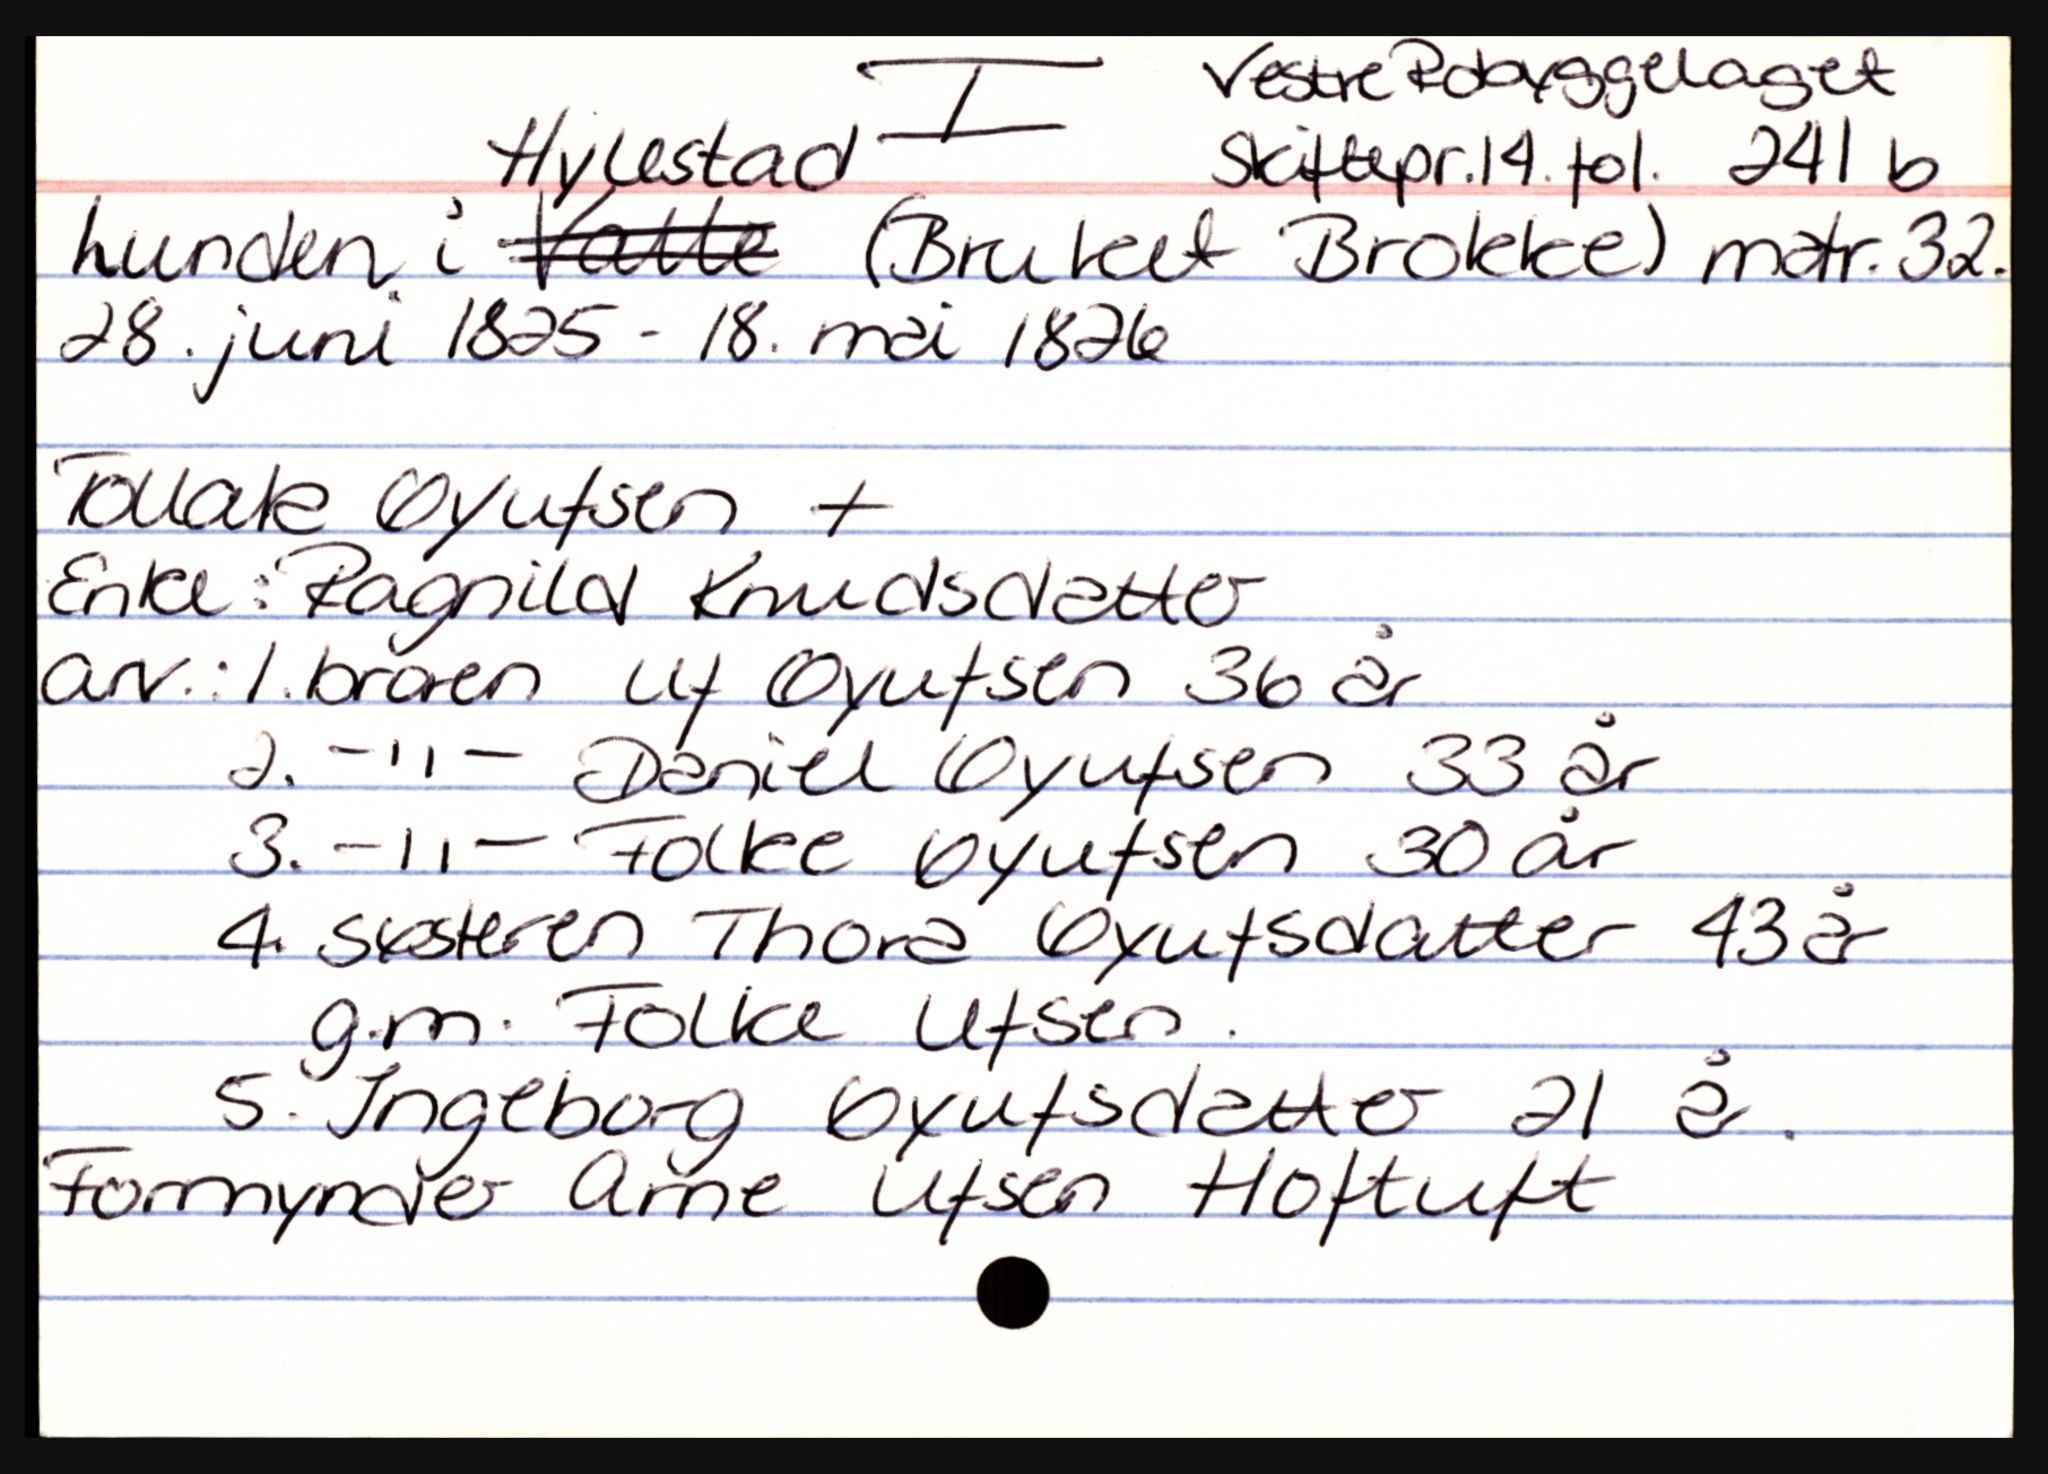 I Vestre Robyggelaget
Hylestad Skiftepr. 14. fol. 241 b
hunden i Valle (Bruket Brokke) matr. 32.
28. juni 1825 - 18. mai 1826
Tollak Øyufsen +
Enke: Ragnild Knudsdatter
arv.: 1. broren Uf Øyufsen 36 år
2. -"- Daniel Øyufsen 33 år
3. -"- Folke Øyufsen 30 år
4. søsteren Thora Øyufsdatter 43 år
g.m. Folke Ufsen.
5. Ingeborg Øyufsdatter 21 år.
Formynder Arne Ufsen Hoftuft